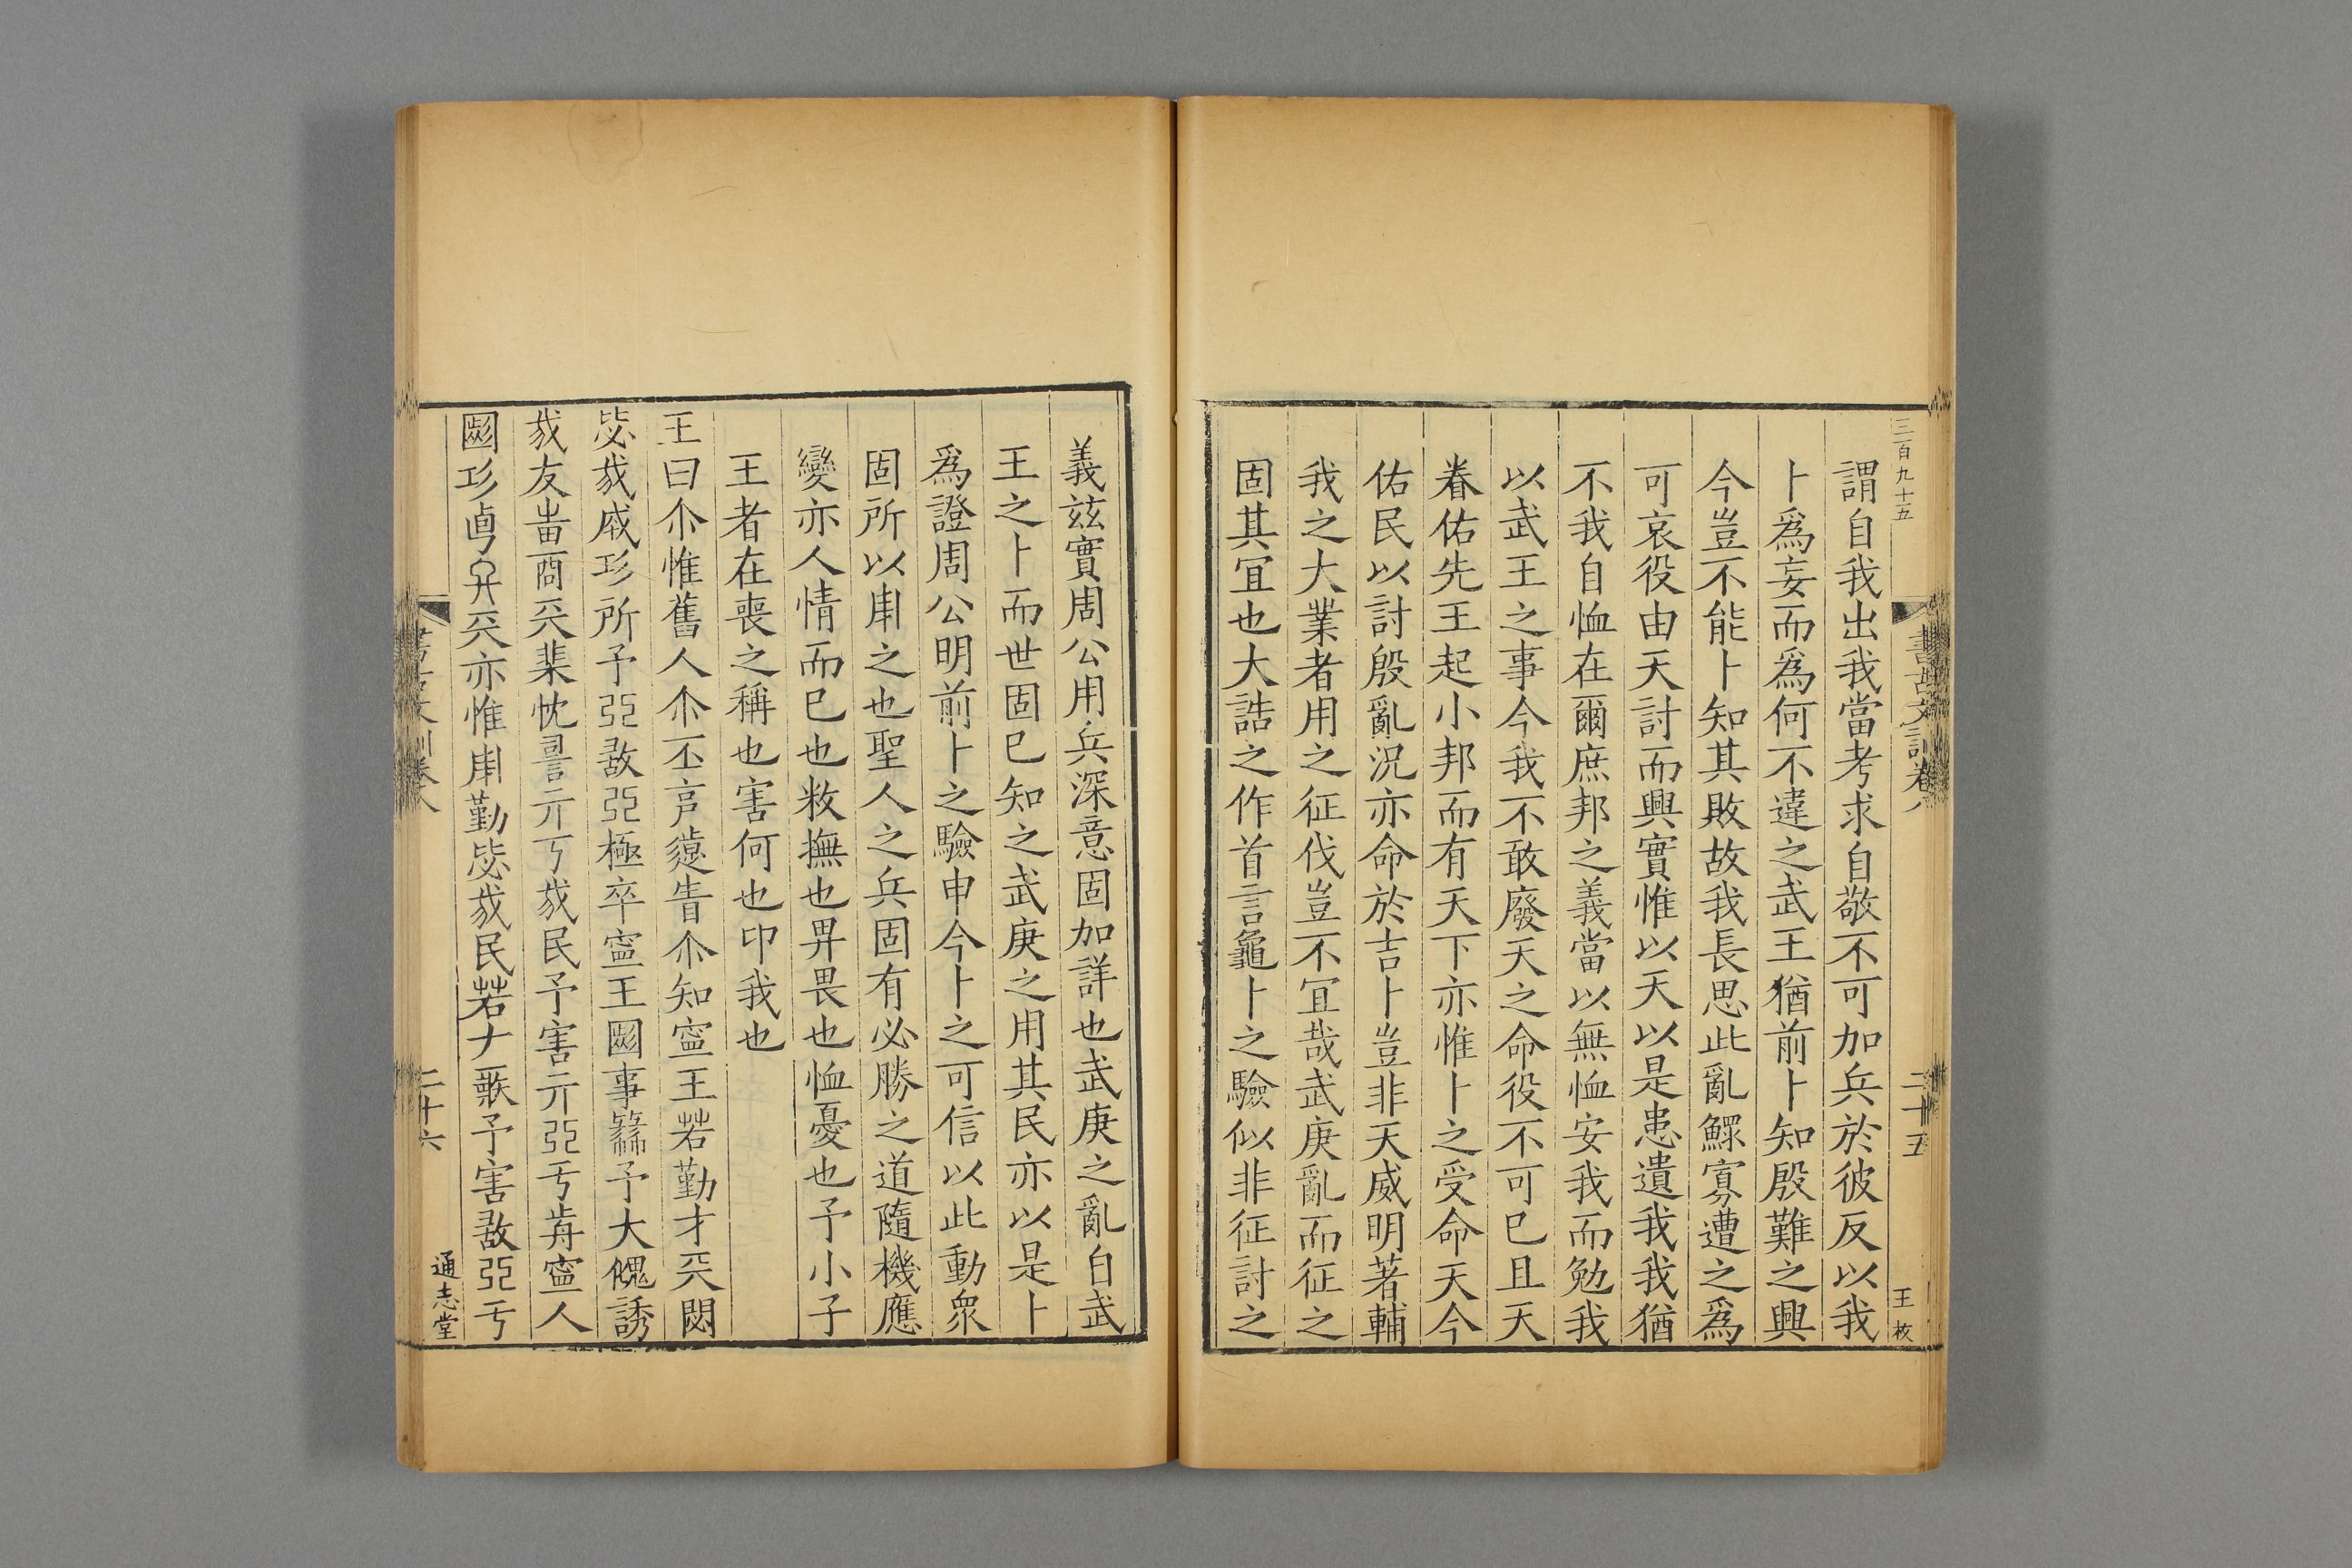 三百九十五
書古文訓卷八
二十五
王枚
謂自我出我當考求自敬不可加兵於彼反以我
卜爲妄而爲何不違之武王猶前卜知殷難之興
今豈不能卜知其敗故我長思此亂鰥寡遭之爲
可哀役由天討而興實惟以天以是患遺我我猶
不我自恤在爾庶邦之義當以無恤安我而勉我
以武王之事今我不敢廢天之命役不可已且天
眷佑先王起小邦而有天下亦惟卜之受命天今
佑民以討殷亂況亦命於吉卜豈非天威明著輔
我之大業者用之征伐豈不冝哉武庚亂而征之
固其冝也大誥之作首言龜卜之驗似非征討之
義兹實周公用兵深意固加詳也武庚之亂白武
王之卜而世固已知之武庚之用其民亦以是卜
爲證周公明前卜之驗申今卜之可信以此動衆
固所以𤰃之也聖人之兵固有必勝之道隨機應
變亦人情而已也敉撫也畀畏也恤憂也予小子
王者在喪之稱也害何也卬我也
王曰尒惟舊人尒丕亯遠眚尒知寍王若勤才兲閟
毖𢦓戚㺬所予亞敌亞極卒寍王圖事予大愧誘
𢦓友𡴘商兲棐忱亓丂𢦓民予害亓亞亐歬寍人
圖㺬卣兲亦惟𤰃勤毖𢦓民若𠂇予害敌亞亐
書古文訓卷八
二十六
通志堂